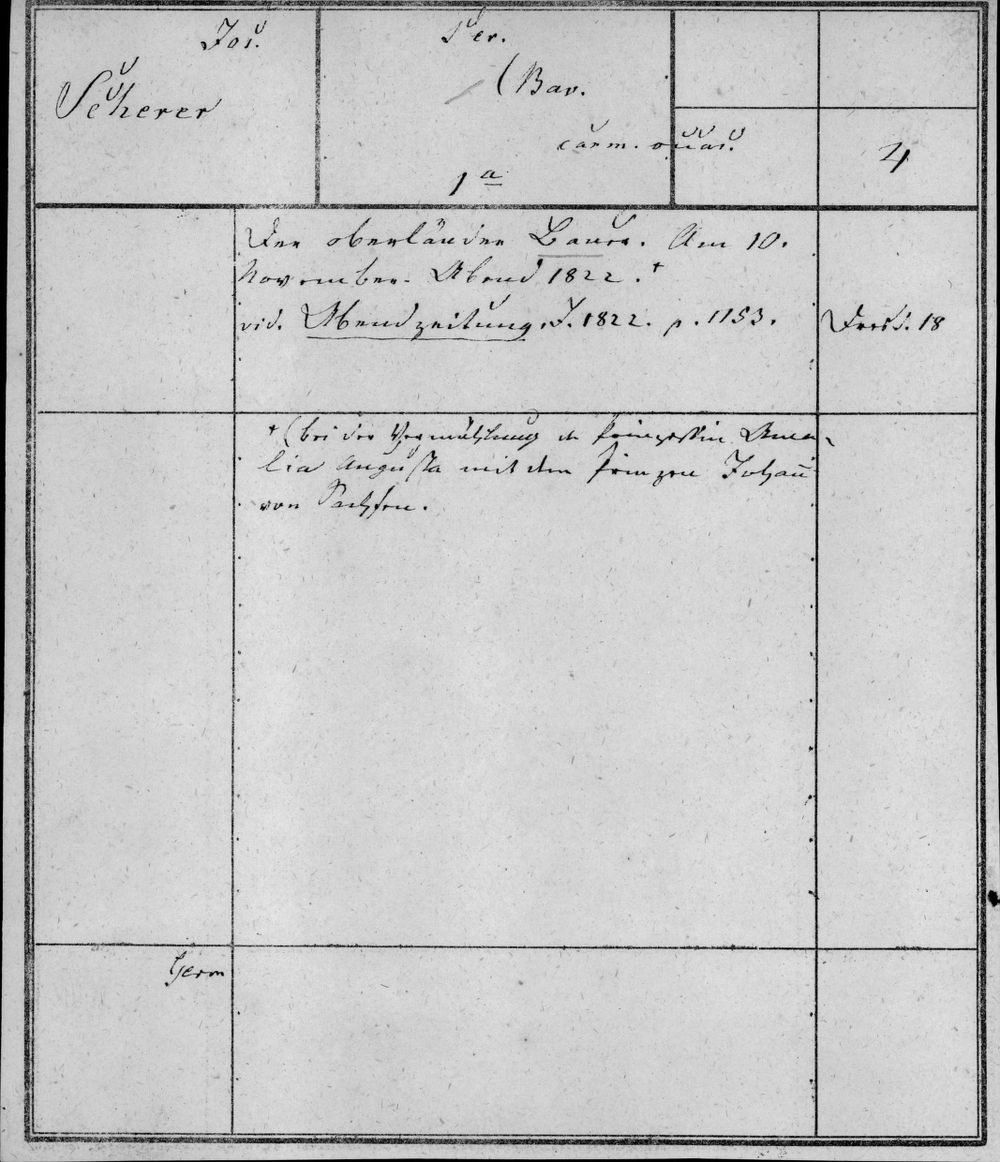 Jos.
Scherer
Per.
(Bav.
carm. occas.
1 a
4
Der oberländer Bauer. Am 10.
November-Abend 1822. †
vid. Abendzeitung. J. 1822. p. 1153.
Dresd. 18
† (bei der Vermählung der Prinzessin Ama-
lia Augusta mit dem Prinzen Johann
von Sachsen.
Germ